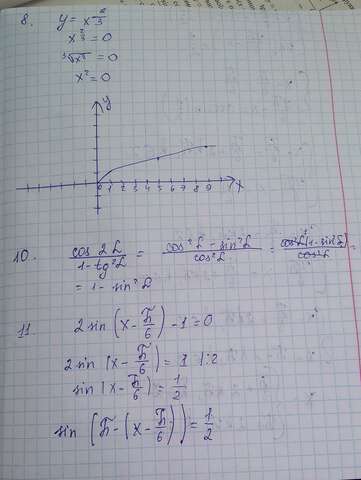 8. y = x^(2/3)
x^(2/3) = 0
³√x² = 0
x² = 0
y
0 1 2 3 4 5 6 7 8 9 x
10. cos 2L / 1 - tg²L = cos²L - sin²L / cos²L = cos²L(1 - sin²L) / cos²L =
= 1 - sin²L
11. 2 sin (x - π/6) - 1 = 0
2 sin (x - π/6) = 1 1:2
sin (x - π/6) = 1/2
sin (π - (x - π/6)) = 1/2